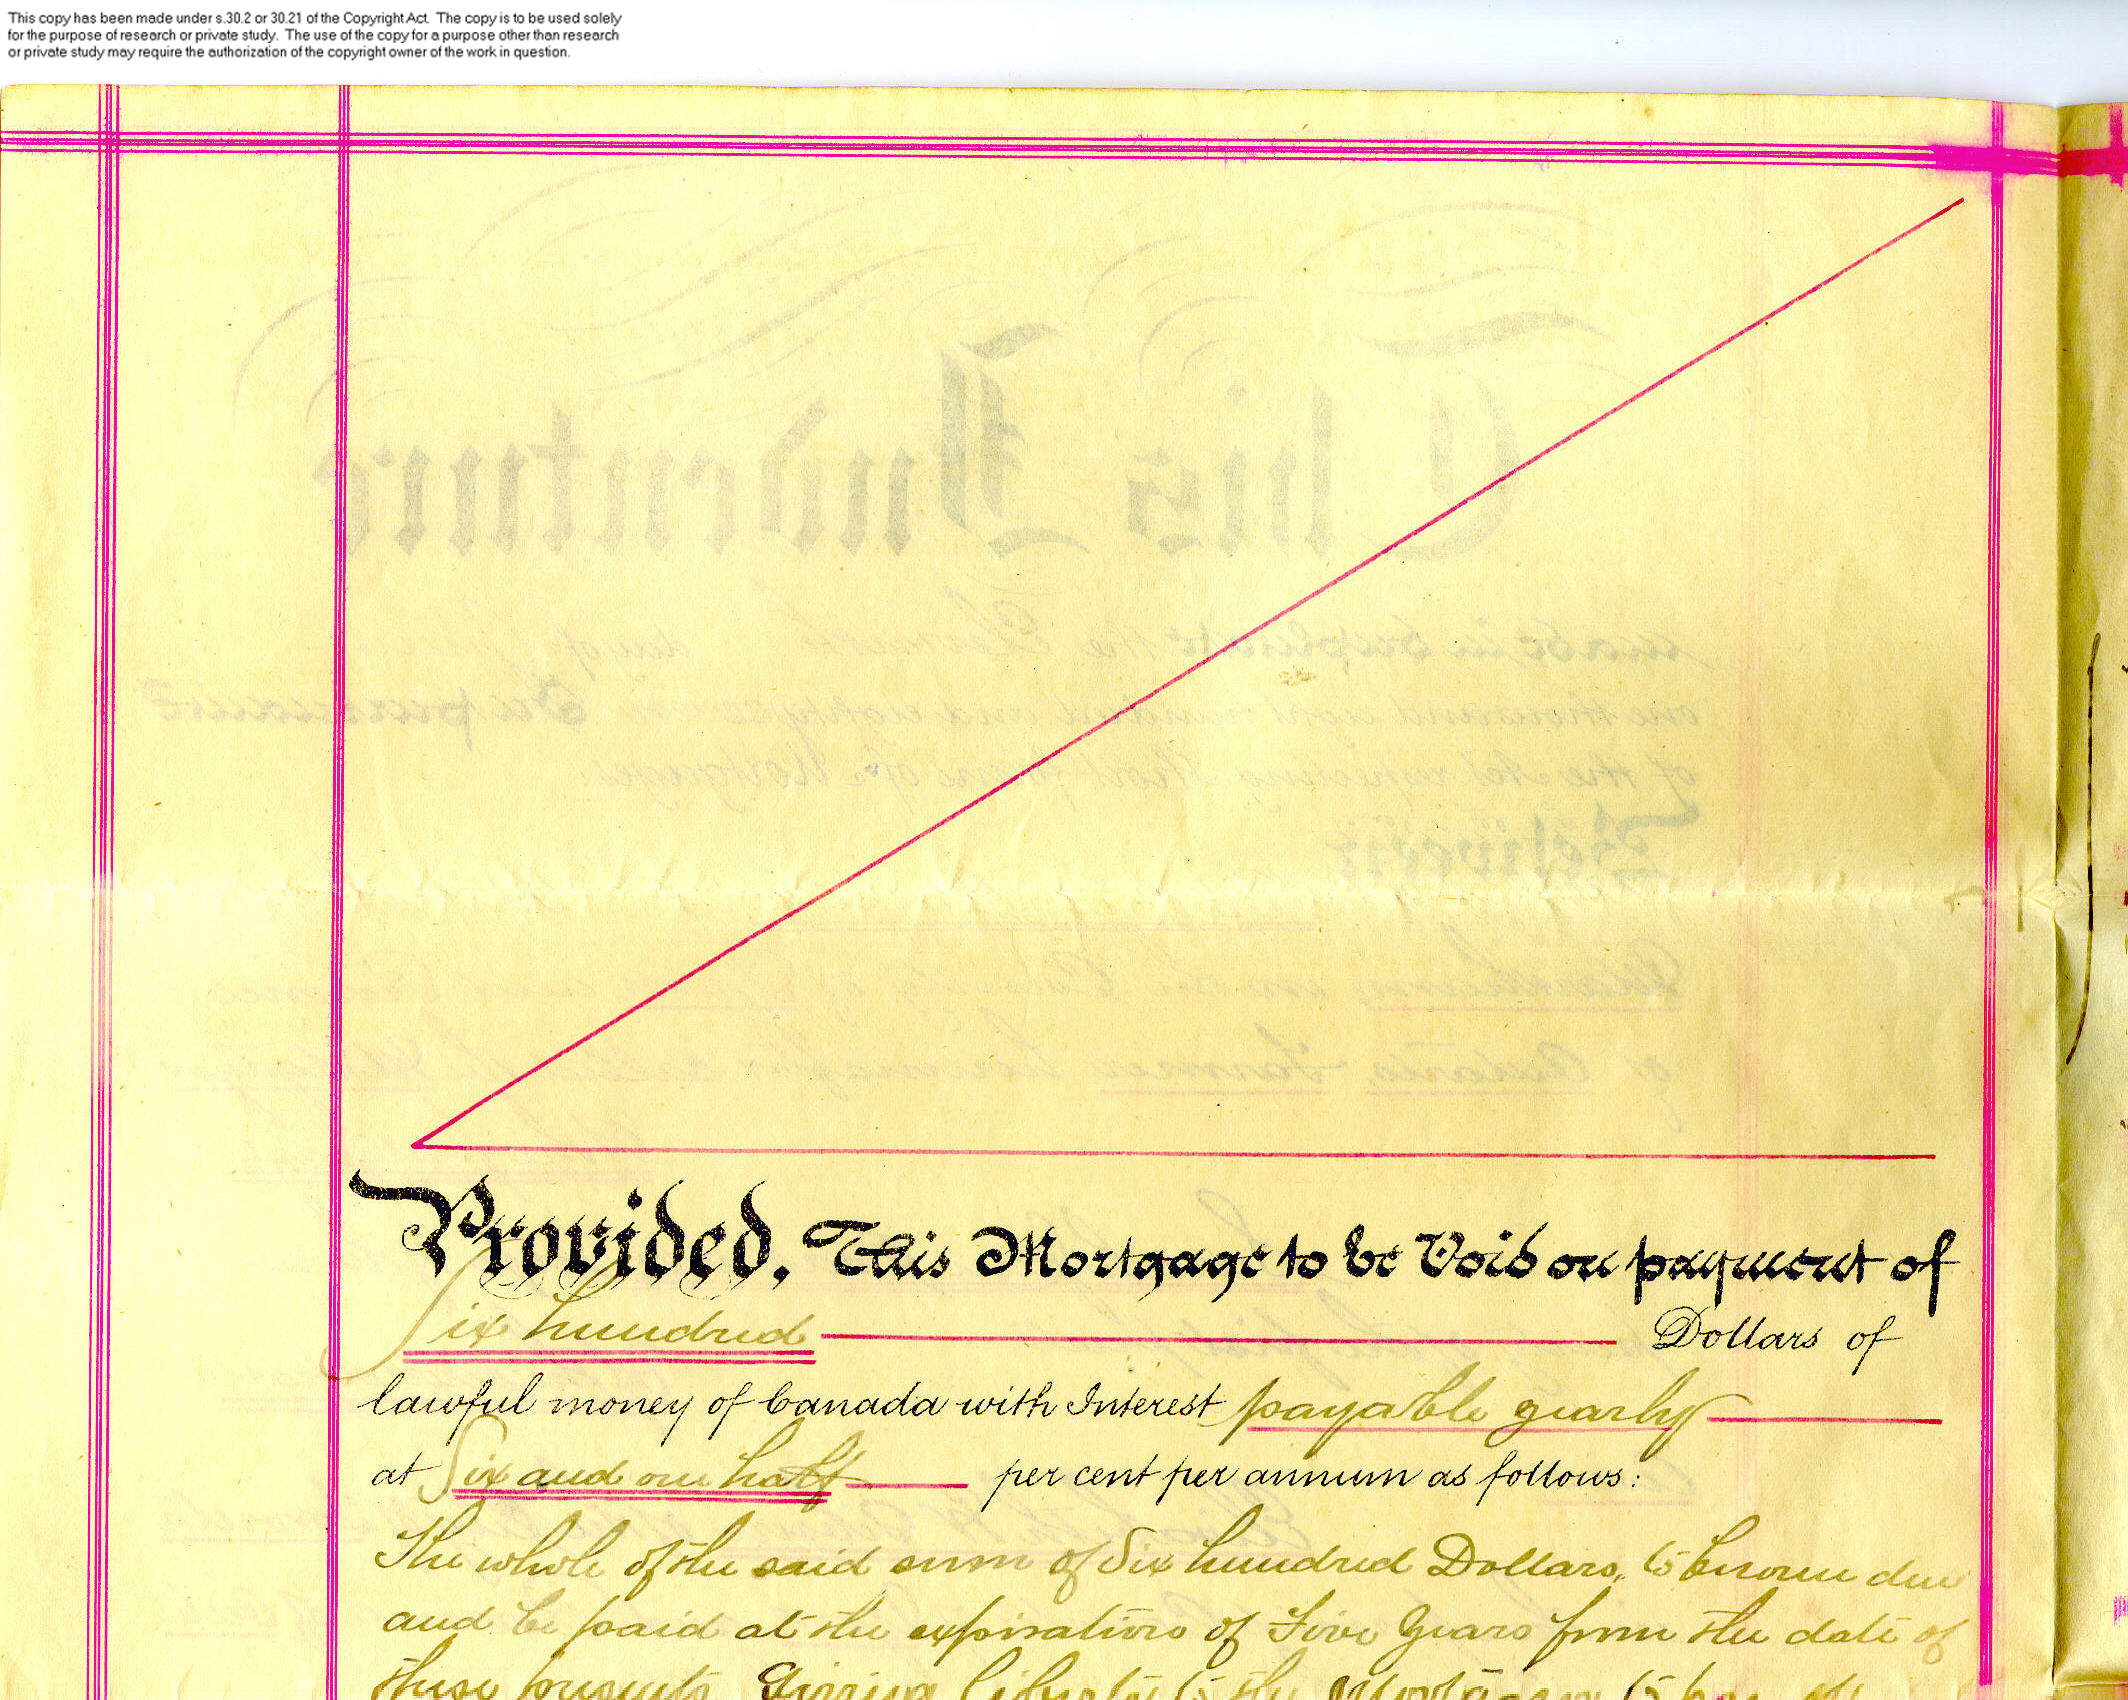 This copy has been made under s.30.2 or 30.21 of the Copyright Act. The copy is to be used solely
for the purpose of research or private study. The use of the copy for a purpose other than research
or private study may require the authorization of the copyright owner of the work in question.
Provided, This Mortgage to be Void on payment of
Six hundred Dollars of
lawful money of Canada with Interest payable yearly
at Six and one half per cent per annum as follows:
The whole of the said sum of Six hundred Dollars, to become due
and be paid at the expiration of Five Years from the date of
these presents. Giving liberty to the Mortgagor to pay